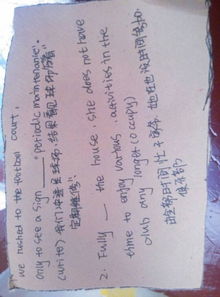 we rushed to the football court,
only to see a sign "periodic maintenance".
(write) 我们冲进足球场, 结果看见
定期维修
2. Fully — the house. she does not have
time to enjoy various activities in the
club any longer (occupy)
时间忙于家务 她再也没时间参加
俱乐部